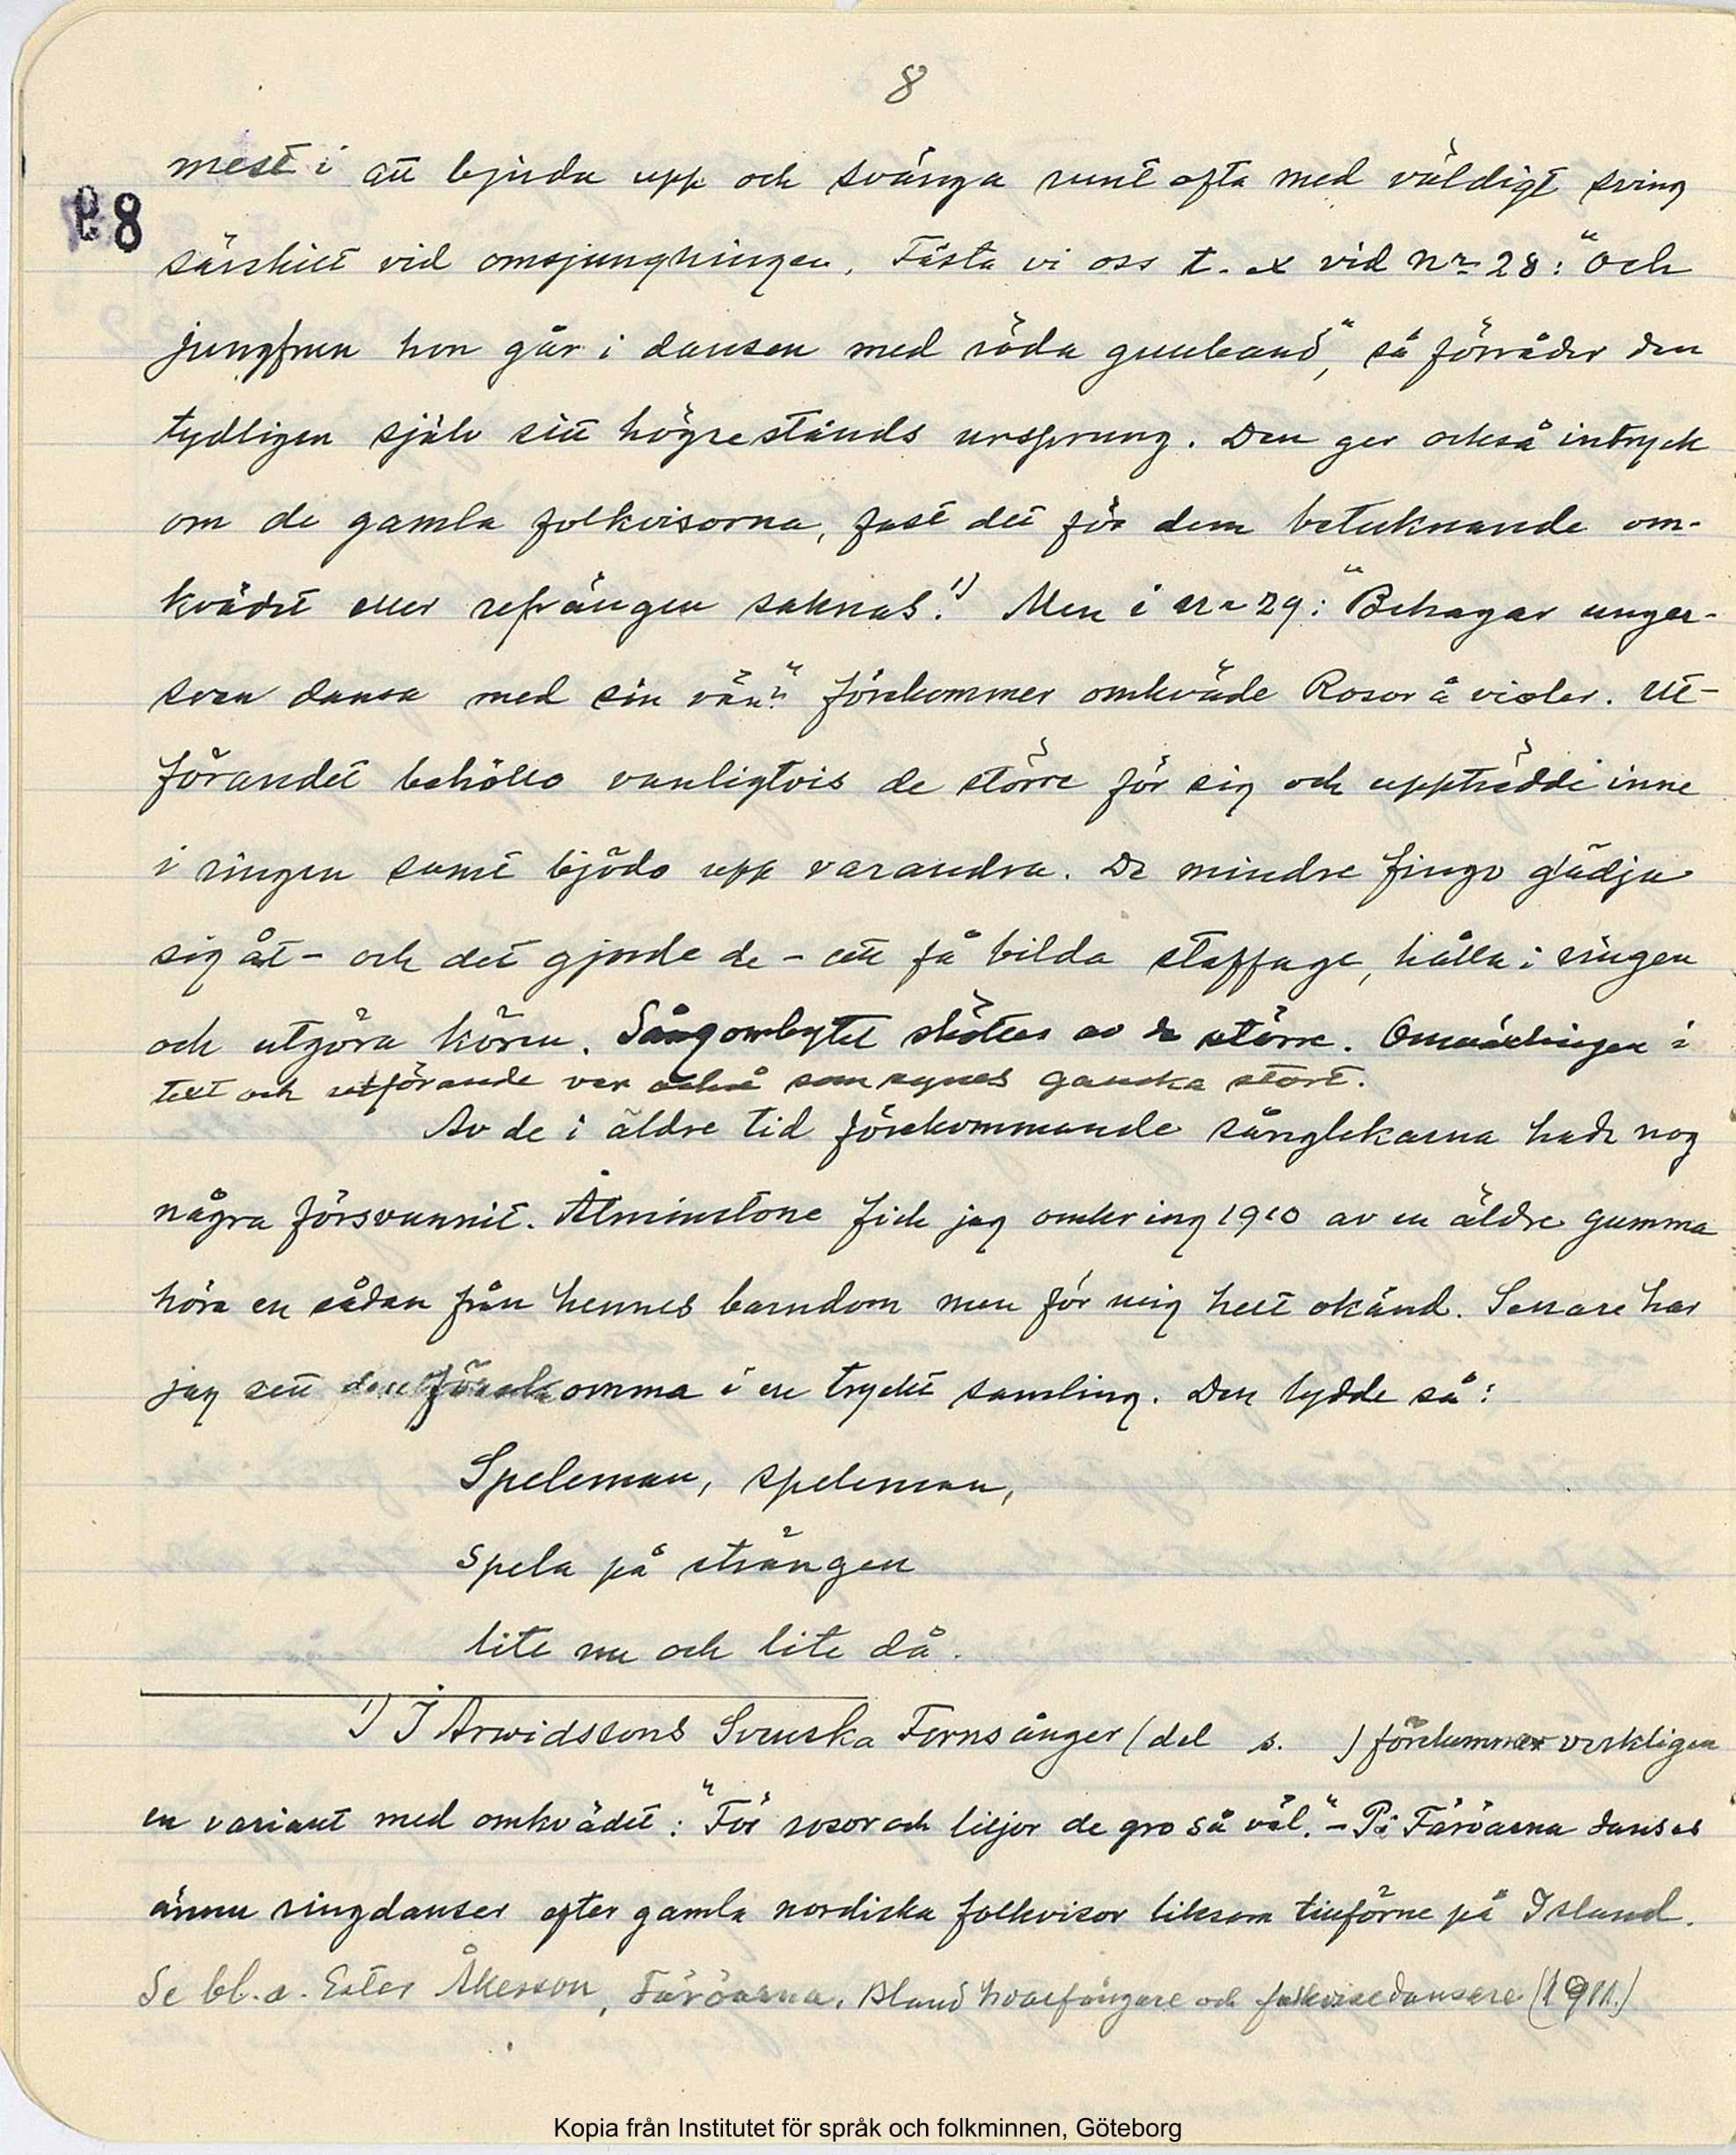 8
mest i att bjuda upp och svänga runt ofta med väldigt sving
98
särskilt vid omsjungningen. Fästa vi oss t. ex vid nr 28: "Och
jungfrun hon går i dansen med röda gullband", så förråder den
tydligen själv sitt högreståndsursprung. Den ger också intryck
om de gamla folkvisorna, fast det för dem betecknande om-
kvädet eller refrängen saknas.1) Men i nr 29: "Behagar unger-
sven dansa med sin vän" förekommer omkväde Rosor å violer. Ut-
förandet behöllo vanligtvis de större för sig och uppträdde inne
i ringen samt bjödo upp varandra. De mindre fingo glädja
sig åt - och det gjorde de - att få bilda staffage, hålla i ringen
och utgöra kören. Sångombytet sköttes av de större. Omväxlingen i
text och utförande var också som synes ganska stort.
Av de i äldre tid förekommande sånglekarna hade nog
några försvunnit. Åtminstone fick jag omkring 1910 av en äldre gumma
höra en sådan från hennes barndom men för mig helt okänd. Senare har
jag sett den förekomma i en tryckt samling. Den lydde så:
Speleman, speleman,
spela på strängen
lite nu och lite då.
1) I Arwidssons Svenska Fornsånger (del s. ) förekommer verkligen
en variant med omkvädet: "För rosor och liljor de gro så väl." - På Färöarna dansas
ännu ringdanser efter gamla nordiska folkvisor liksom tillförne på Island.
Se bl. a. Ester Åkesson, Färöarna, Bland hvalfångare och folkvisedansare (1911.)
Kopia från Institutet för språk och folkminnen, Göteborg